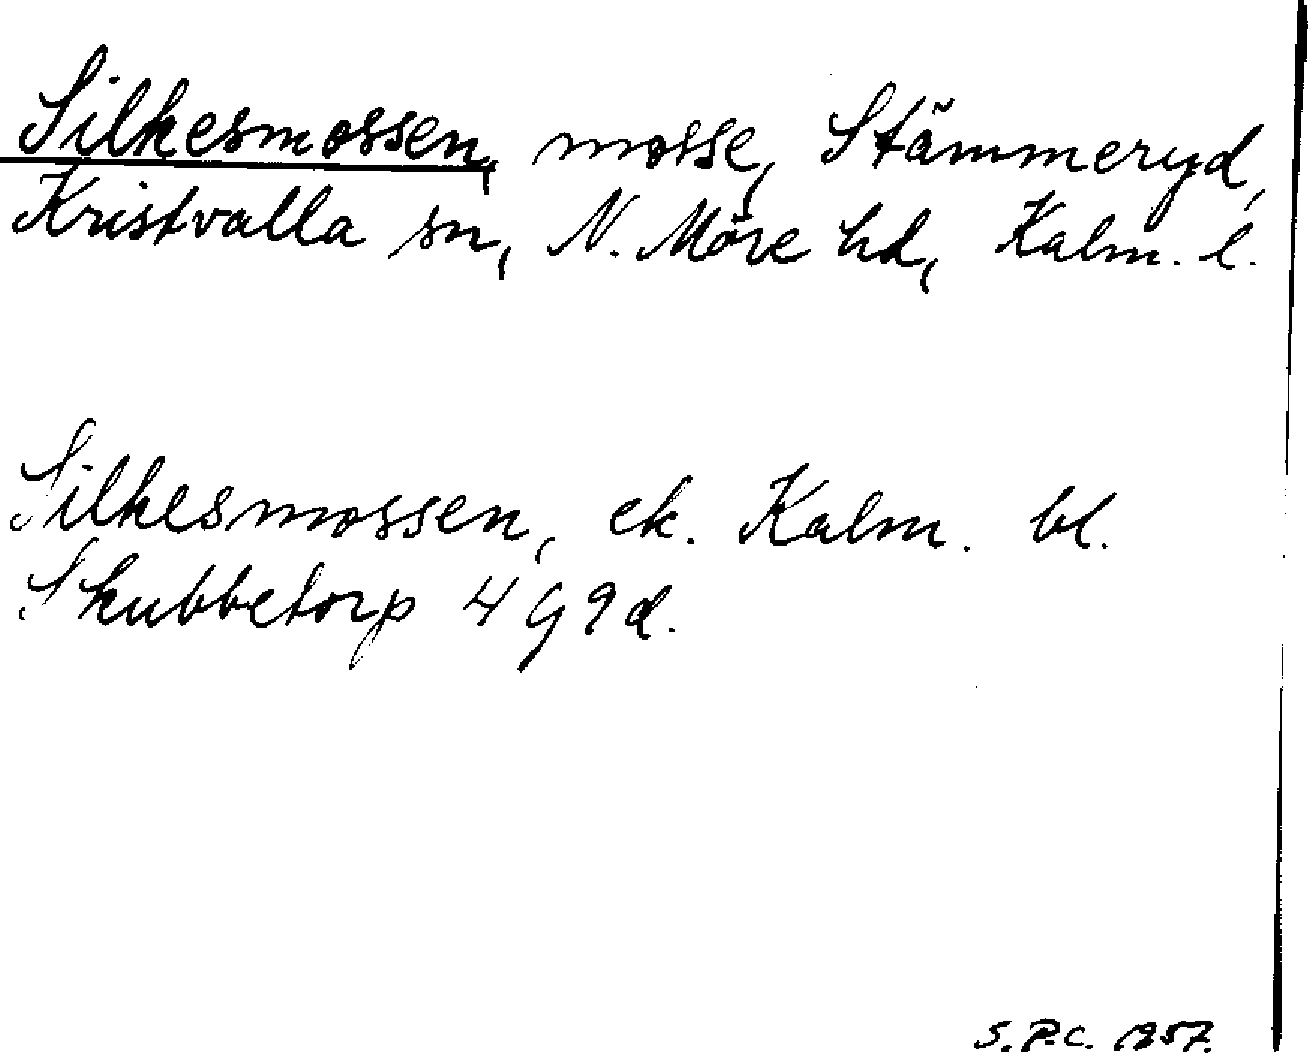 Silkesmossen, mosse, Stämmeryd,
Kristvalla sn, N. Möre hd, Kalm. l.
Silkesmossen, ek. Kalm. bl.
Skubbetorp 4 G 9 d.
S.P.C. 1957.